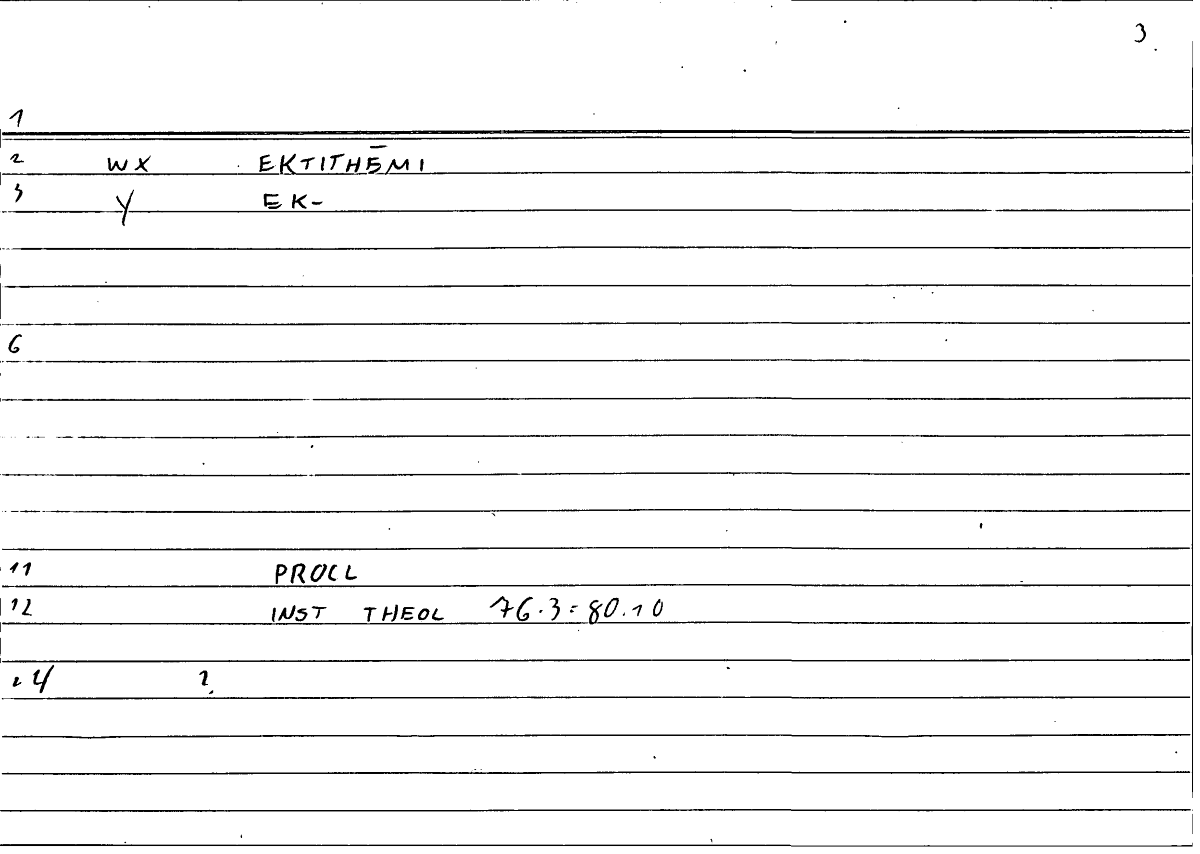 3
1
2 WX EKTITHĒMI
3 Y EK-
6
11 PROCL
12 INST THEOL 76.3 = 80.10
14 2